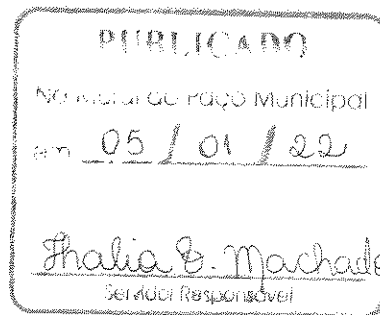 PUBLICADO
No Mural do Paço Municipal
em 05 / 01 / 22
Thalia E. Machado
Servidor Responsável